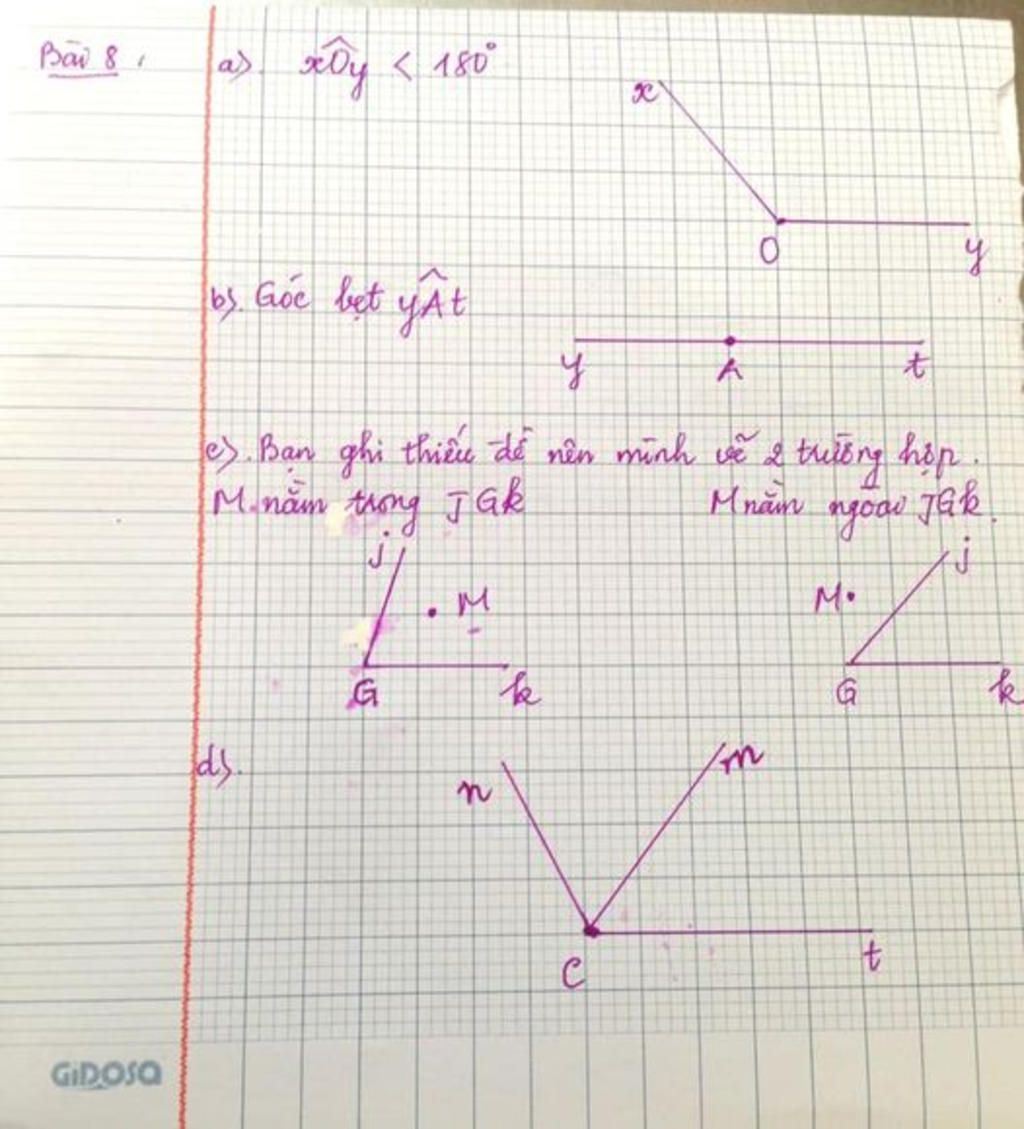 Bài 8,
a). xÔy < 180°
x
O
y
b). Góc bẹt yÂt
y A t
c). Bạn ghi thiếu đề nên mình vẽ 2 trường hợp.
M nằm trong JGk
M nằm ngoài JGk.
j
M
G k
j
M
G k
d).
n m
C t
GIDOSA